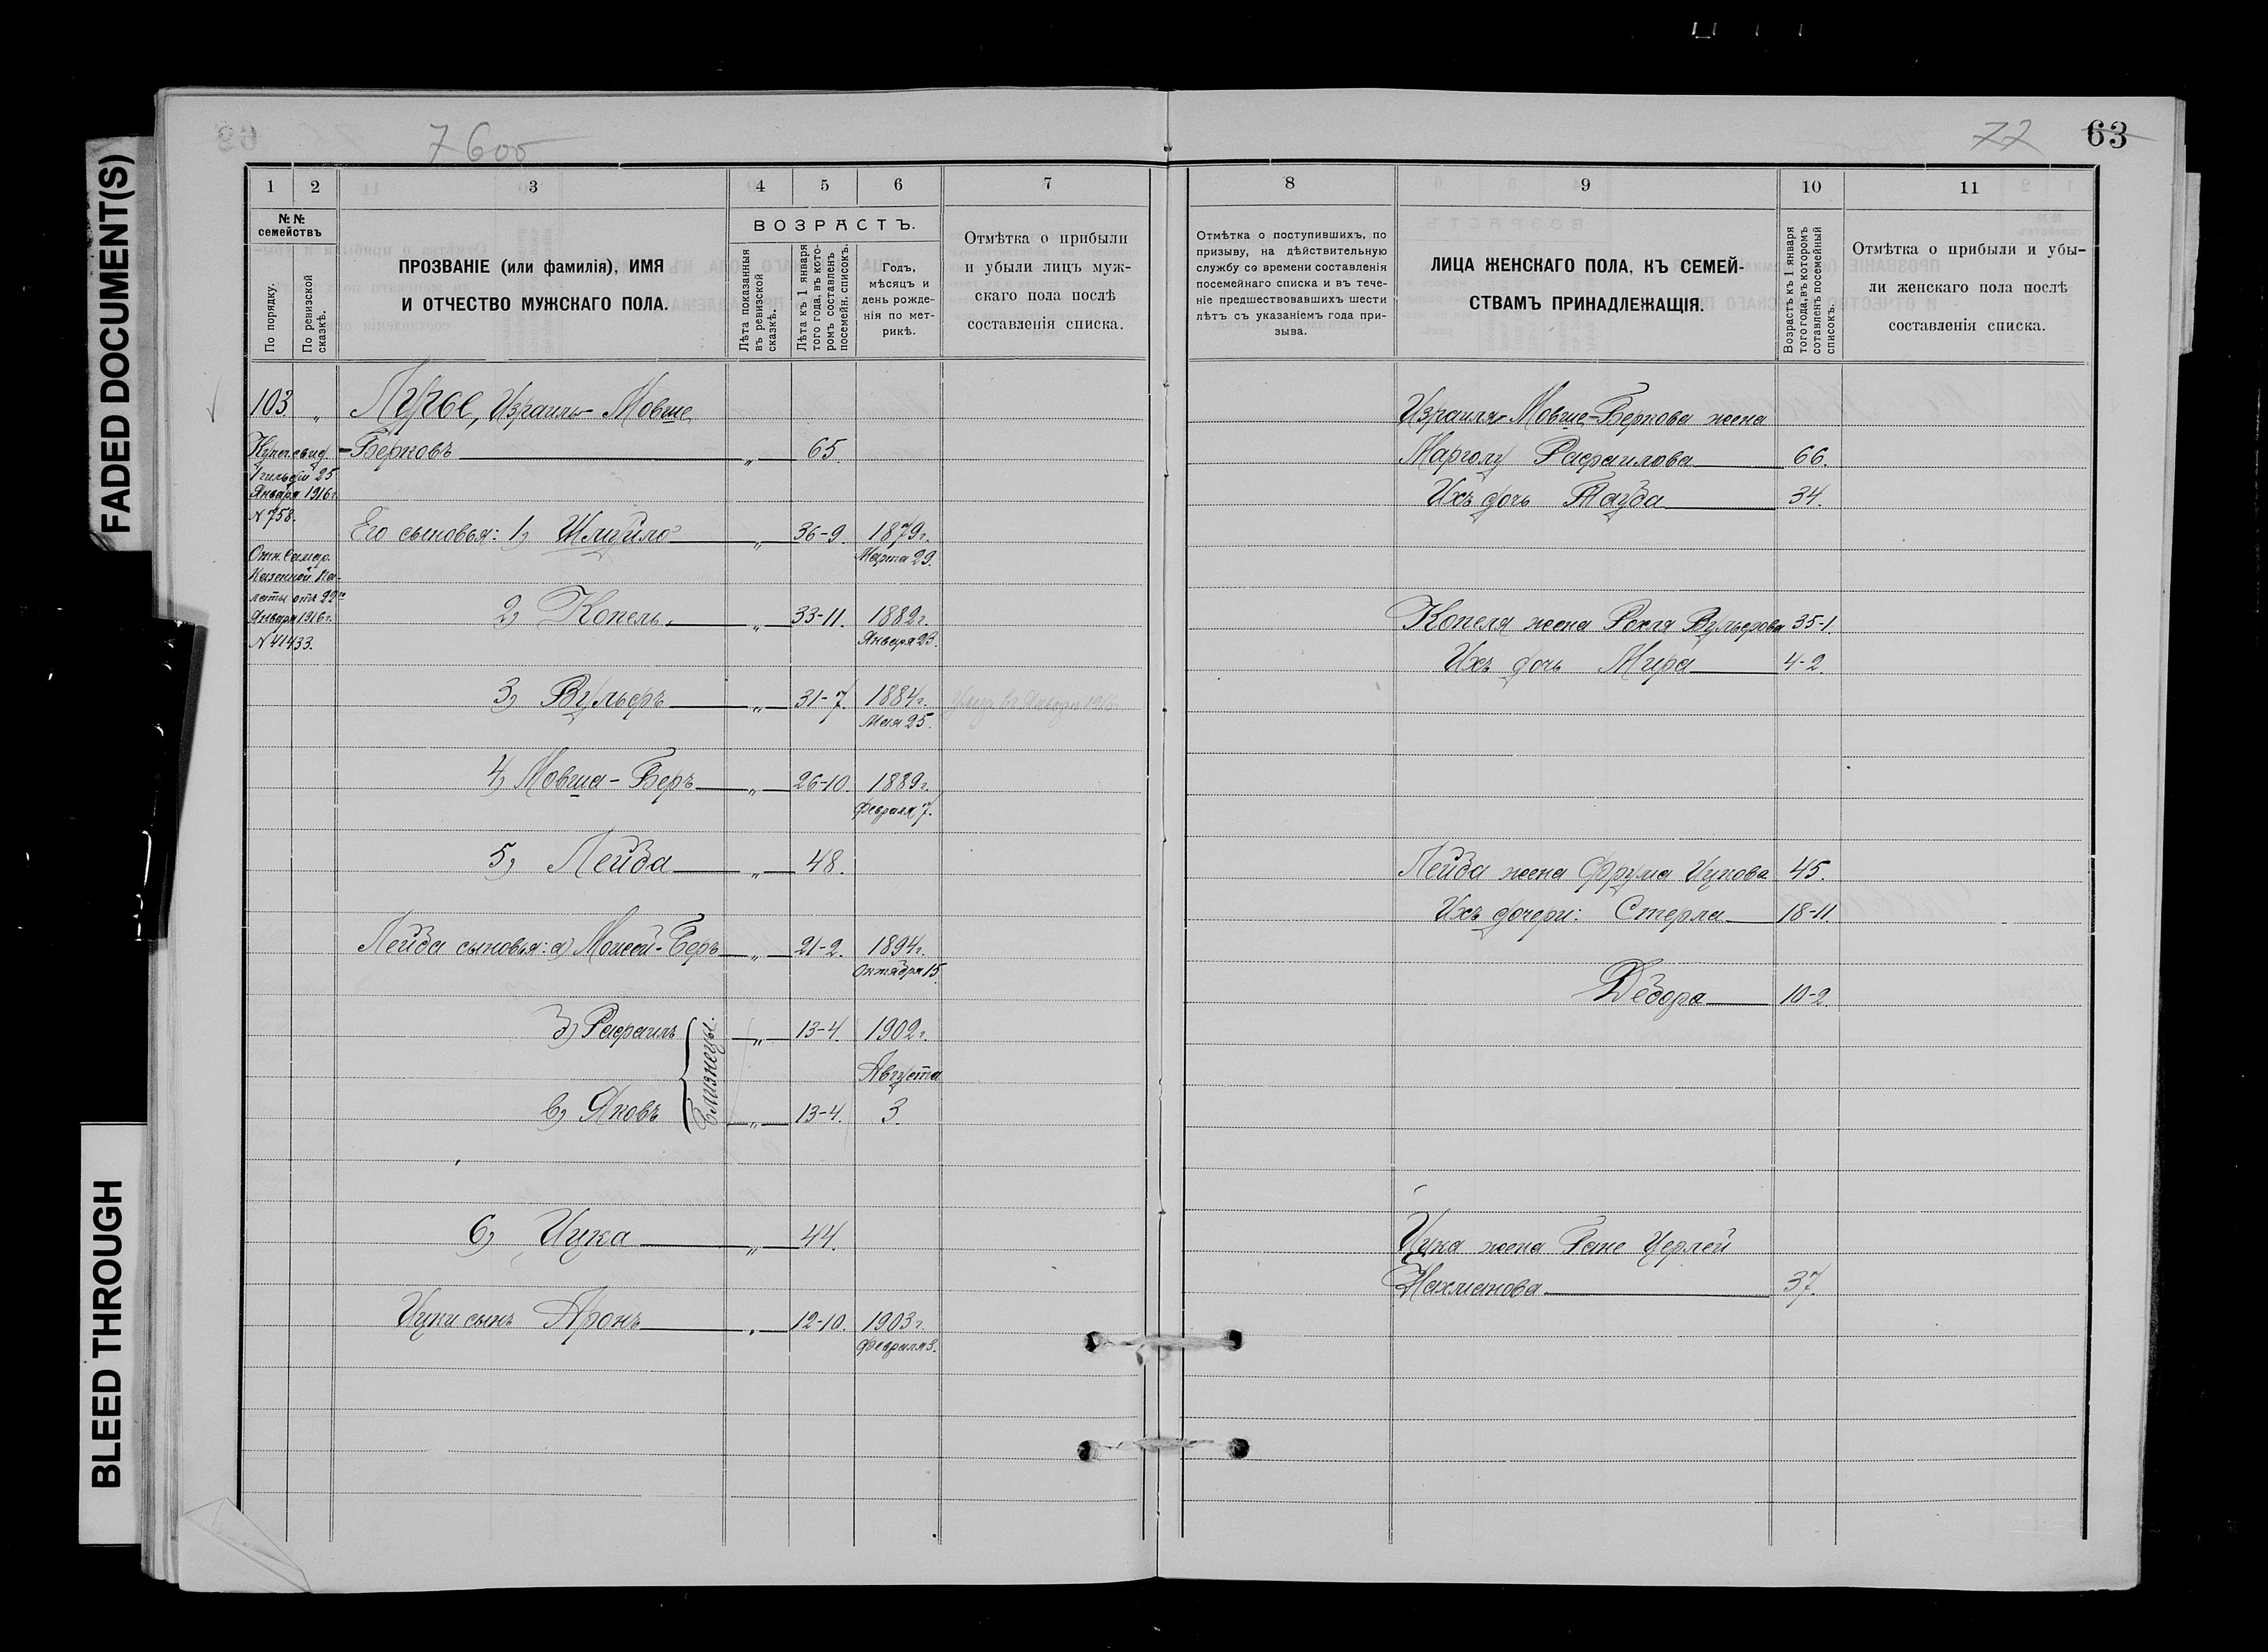 FADED DOCUMENT(S)
BLEED THROUGH
7600
77 63
1 2 3 4 5 6 7
№ № семействъ
По порядку.
По ревизской сказкѣ.
ПРОЗВАНІЕ (или фамилія), ИМЯ
И ОТЧЕСТВО МУЖСКАГО ПОЛА.
ВОЗРАСТЪ.
Лѣта показанныя въ ревизской сказкѣ.
Лѣта къ 1 января того года, въ кото-ромъ составленъ посемейн. списокъ.
Годъ,
мѣсяцъ и
день рожде-
нія по мет-
рикѣ.
Отмѣтка о прибыли
и убыли лицъ муж-
скаго пола послѣ
составленія списка.
8 9 10 11
Отмѣтка о поступившихъ, по
призыву, на дѣйствительную
службу со времени составленія
посемейнаго списка и въ тече-
ніе предшествовавшихъ шести
лѣтъ съ указаніемъ года при-
зыва.
ЛИЦА ЖЕНСКАГО ПОЛА, КЪ СЕМЕЙ-
СТВАМЪ ПРИНАДЛЕЖАЩІЯ.
Возрастъ къ 1 января
того года, въ которомъ
сотавленъ посемейный
списокъ.
Отмѣтка о прибыли и убы-
ли женскаго пола послѣ
составленія списка.
103 „ Лурье, Израиль Мовше
-Берковъ „ 65.
Купеч. свид.
Января 1916 г.
N 758.
Казенной Па-
латы отъ 22го
Января 1916 г.
N 41433.
Его сыновья: 1) Шлуйло „ 36-9. 1879 г.
Марта 29.
2) Копель „ 33-11. 1882 г.
Января 23.
3) Вульфъ „ 31-7. 1884 г.
Мая 25.
4) Мовша-Беръ „ 26-10. 1889 г.
Февраля 7.
5) Лейба „ 48.
Лейба сыновья: а) Моисей-Беръ „ 21-2. 1894 г.
Октября 15.
б) Рафаилъ „ 13-4. 1902 г.
Близнецы.
Августа
в) Яковъ „ 13-4. 3.
6) Ицка „ 44.
Ицки сынъ Аронъ „ 12-10. 1903 г.
Февраля 3.
Израиля-Мовше-Беркова жена
Рафаилова 66.
Ихъ дочь Тауба 34.
Копеля жена Рохля Вульфова 35-1.
Ихъ дочь Мира 4-2.
Лейба жена Фрума Ицкова 45.
Ихъ дочери: Стерла 18-11
Дебора 10-2.
Ицка жена
Нахманова 37.